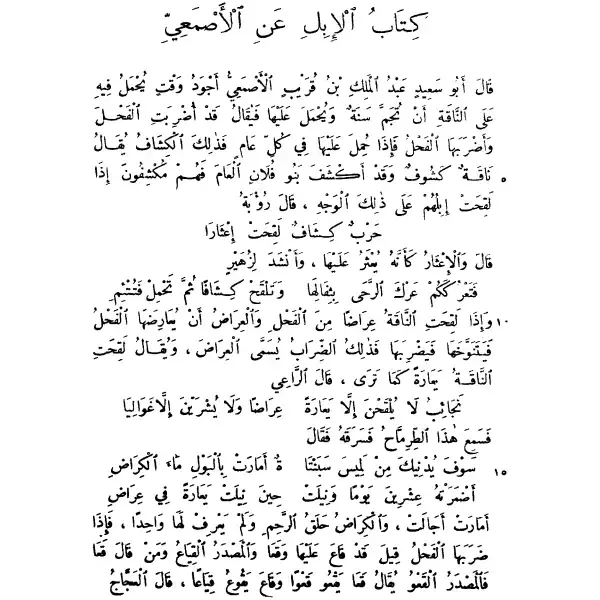 كِتَابُ ٱلْإِبِلِ عَنِ ٱلْأَصْمَعِيِّ
قَالَ أَبُو سَعِيدٍ عَبْدُ ٱلْمَلِكِ بْنُ قُرَيْبٍ ٱلْأَصْمَعِيُّ أَجْوَدُ وَقْتٍ يُحْمَلُ فِيهِ
عَلَى ٱلنَّاقَةِ أَنْ تُجَمَّ سَنَةً وَيُحْمَلَ عَلَيْهَا فَيُقَالُ قَدْ أُضْرِبَتِ ٱلْفَحْلَ
وَأَضْرَبَهَا ٱلْفَحْلُ فَإِذَا حُمِلَ عَلَيْهَا فِي كُلِّ عَامٍ فَذٰلِكَ ٱلْكِشَافُ يُقَالُ
نَاقَةٌ كَشُوفٌ وَقَدْ أَكْشَفَ بَنُو فُلَانٍ ٱلْعَامَ فَهُمْ مُكْشِفُونَ إِذَا ٥
لَقِحَتْ إِبِلُهُمْ عَلَى ذٰلِكَ ٱلْوَجْهِ ، قَالَ رُؤْبَةُ
حَرْبُ كِشَافٍ لَقِحَتْ إِعْثَارَا
قَالَ وَٱلْإِعْثَارُ كَأَنَّهُ يُعْثَرُ عَلَيْهَا ، وَأَنْشَدَ لِزُهَيْرٍ
فَتَعْرُكْكُمْ عَرْكَ ٱلرَّحَى بِثِفَالِهَا وَتَلْقَحْ كِشَافًا ثُمَّ تَحْمِلْ فَتُتْئِمِ
وَإِذَا لَقِحَتِ ٱلنَّاقَةُ عِرَاضًا مِنَ ٱلْفَحْلِ وَٱلْعِرَاضُ أَنْ يُعَارِضَهَا ٱلْفَحْلُ ١٠
فَيَتَنَوَّخَهَا فَيَضْرِبَهَا فَذٰلِكَ ٱلضِّرَابُ يُسَمَّى ٱلْعِرَاضَ ، وَيُقَالُ لَقِحَتِ
ٱلنَّاقَةُ يَعَارَةً كَمَا تَرَى ، قَالَ ٱلرَّاعِي
نَجَائِبُ لَا يُلْقَحْنَ إِلَّا يَعَارَةً عِرَاضًا وَلَا يُشْرَيْنَ إِلَّا غَوَالِيَا
فَسَمِعَ هٰذَا ٱلطِّرِمَّاحُ فَسَرَقَهُ فَقَالَ
سَوْفَ يُدْنِيكَ مِنْ لَمِيسَ سَبَنْتَا ةٌ أَمَارَتْ بِٱلْبَوْلِ مَاءَ ٱلْكِرَاضِ ١٥
أَضْمَرَتْهُ عِشْرِينَ يَوْمًا وَنِيلَتْ حِينَ نِيلَتْ يَعَارَةً فِي عِرَاضِ
أَمَارَتْ أَجَالَتْ ، وَٱلْكِرَاضُ حَلَقُ ٱلرَّحِمِ وَلَمْ يَعْرِفْ لَهَا وَاحِدًا ، فَإِذَا
ضَرَبَهَا ٱلْفَحْلُ قِيلَ قَدْ قَاعَ عَلَيْهَا وَقَعَا وَٱلْمَصْدَرُ ٱلْقِيَاعُ وَمَنْ قَالَ قَعَا
فَٱلْمَصْدَرُ ٱلْقَعْوُ يُقَالُ قَعَا يَقْعُو قَعْوًا وَقَاعَ يَقُوعُ قِيَاعًا ، قَالَ ٱلْعَجَّاجُ